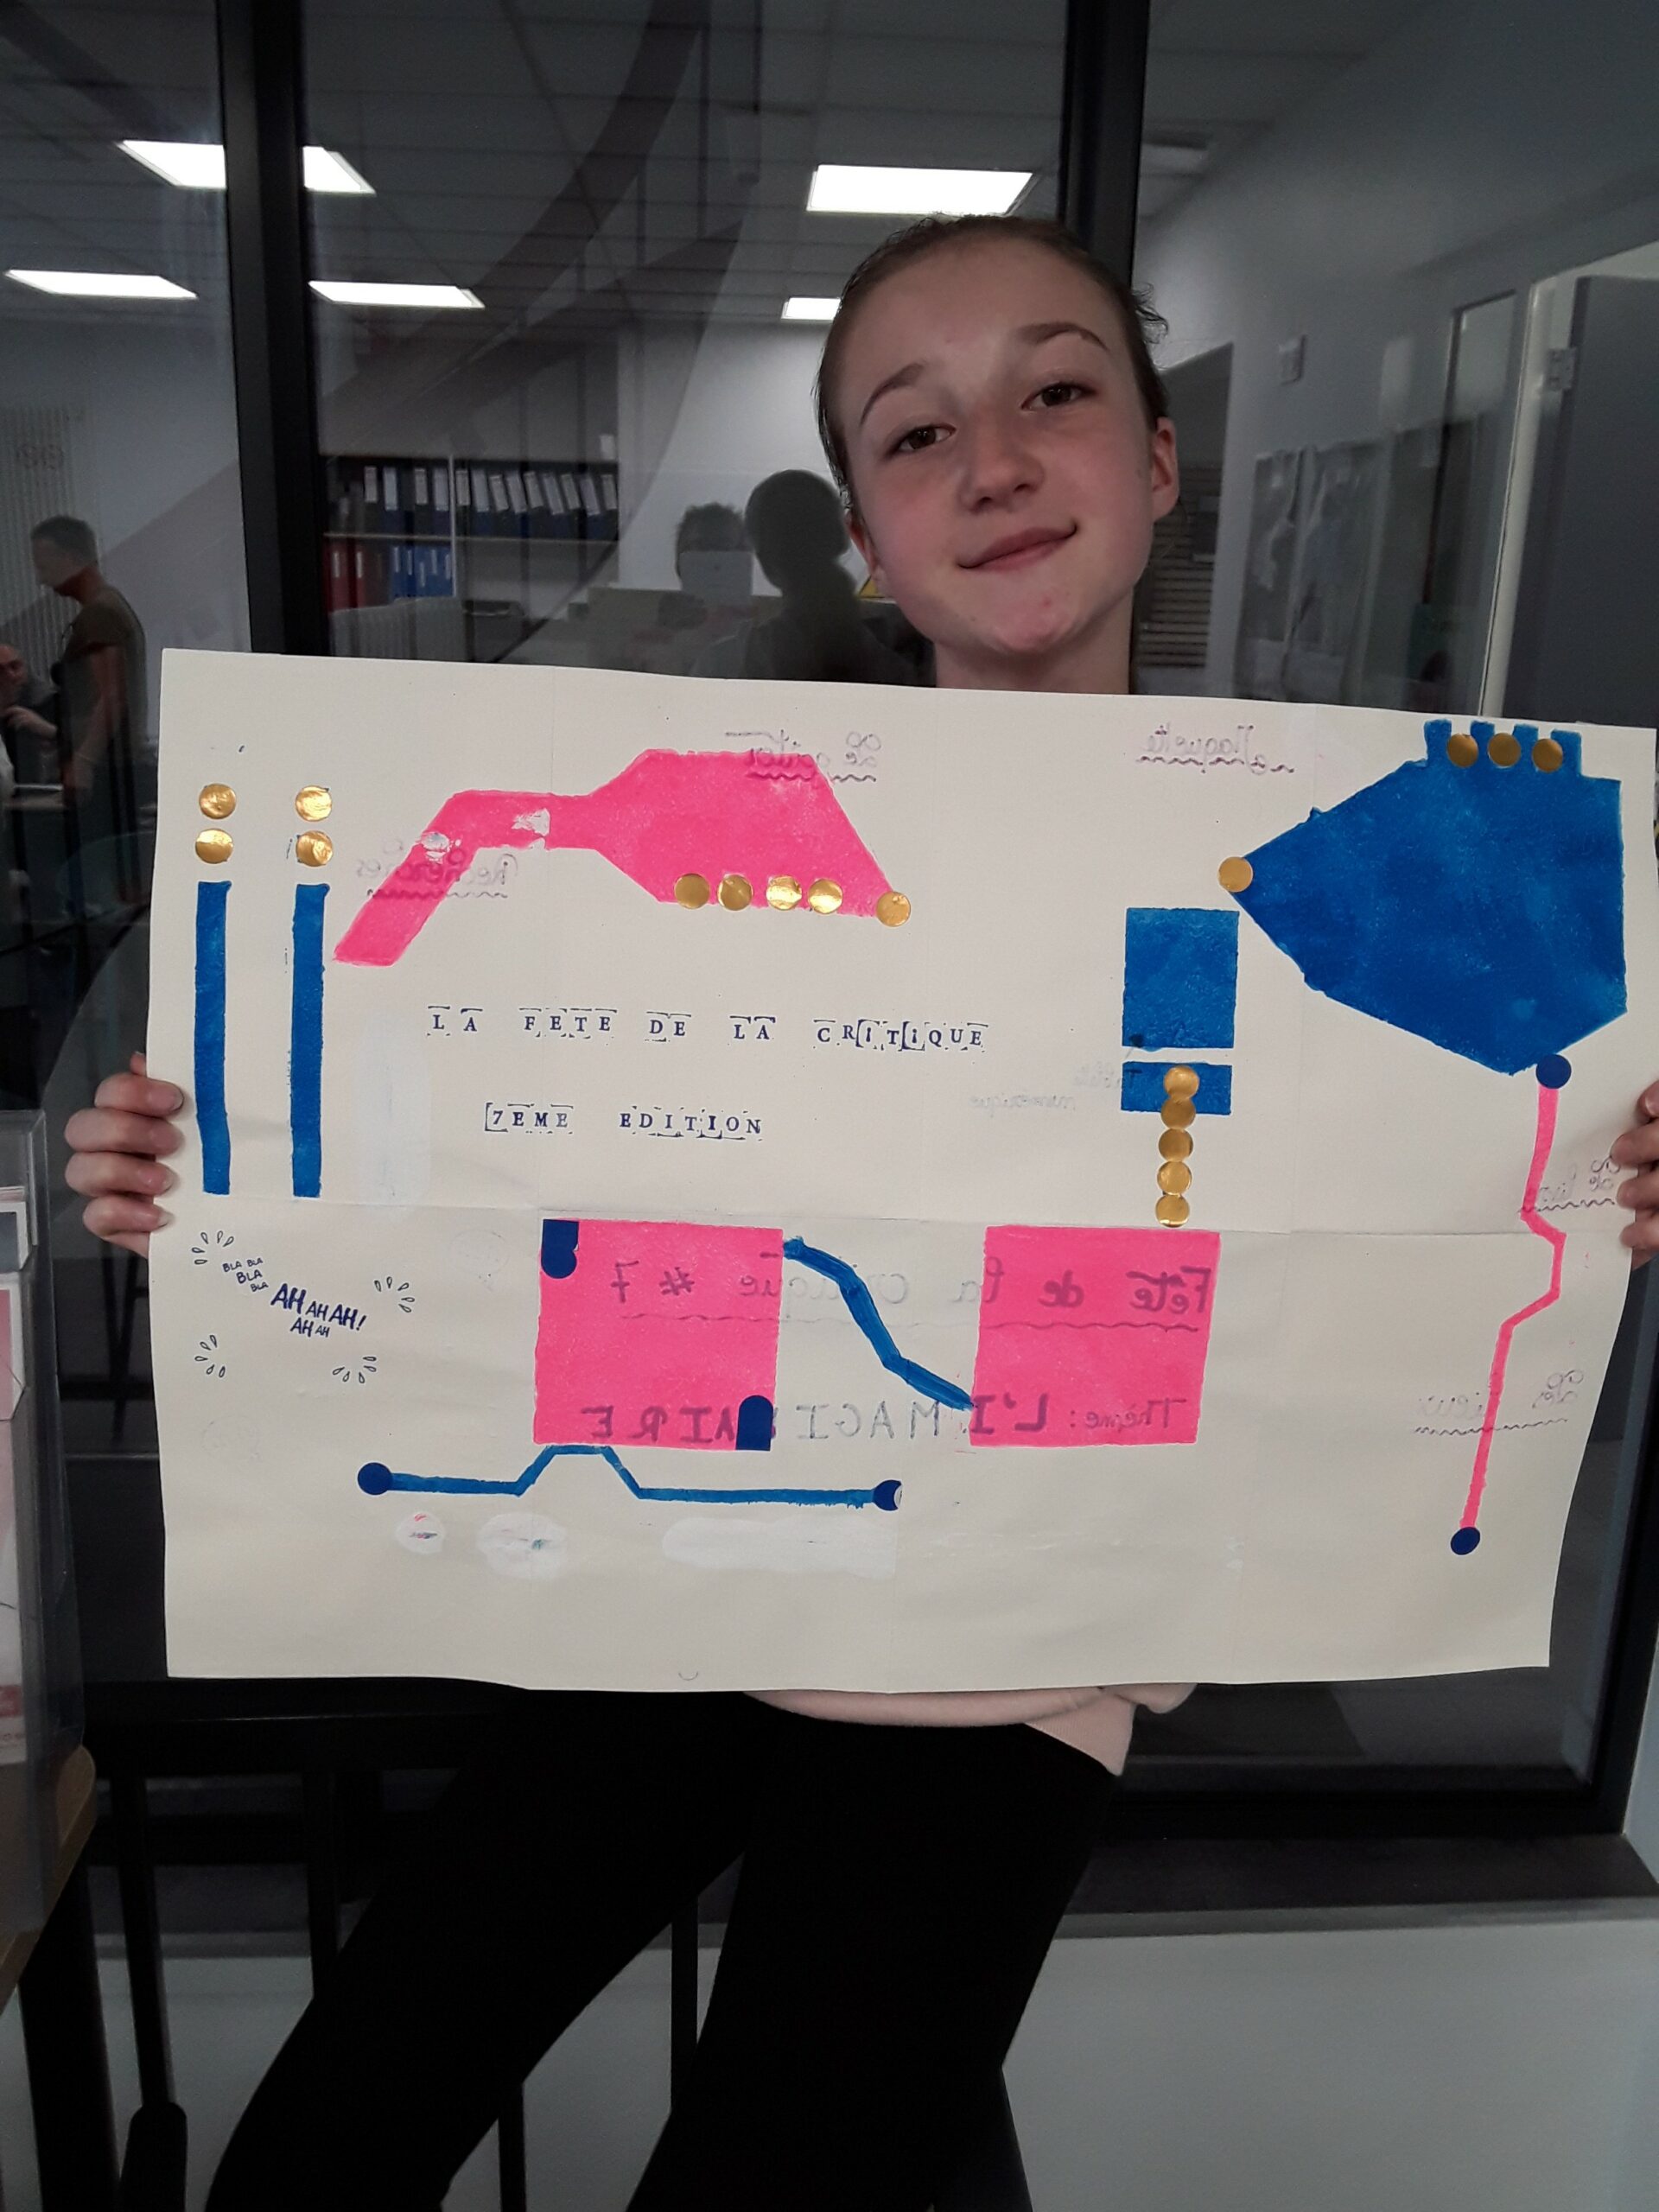 LA FETE DE LA CRITIQUE
7EME EDITION
BLA BLA
BLA
BLA
AH AH AH!
AH AH
Le goûter
Maquette
Recherches
numérique
Fête de la critique # 7
Thème: L'IMAGINAIRE